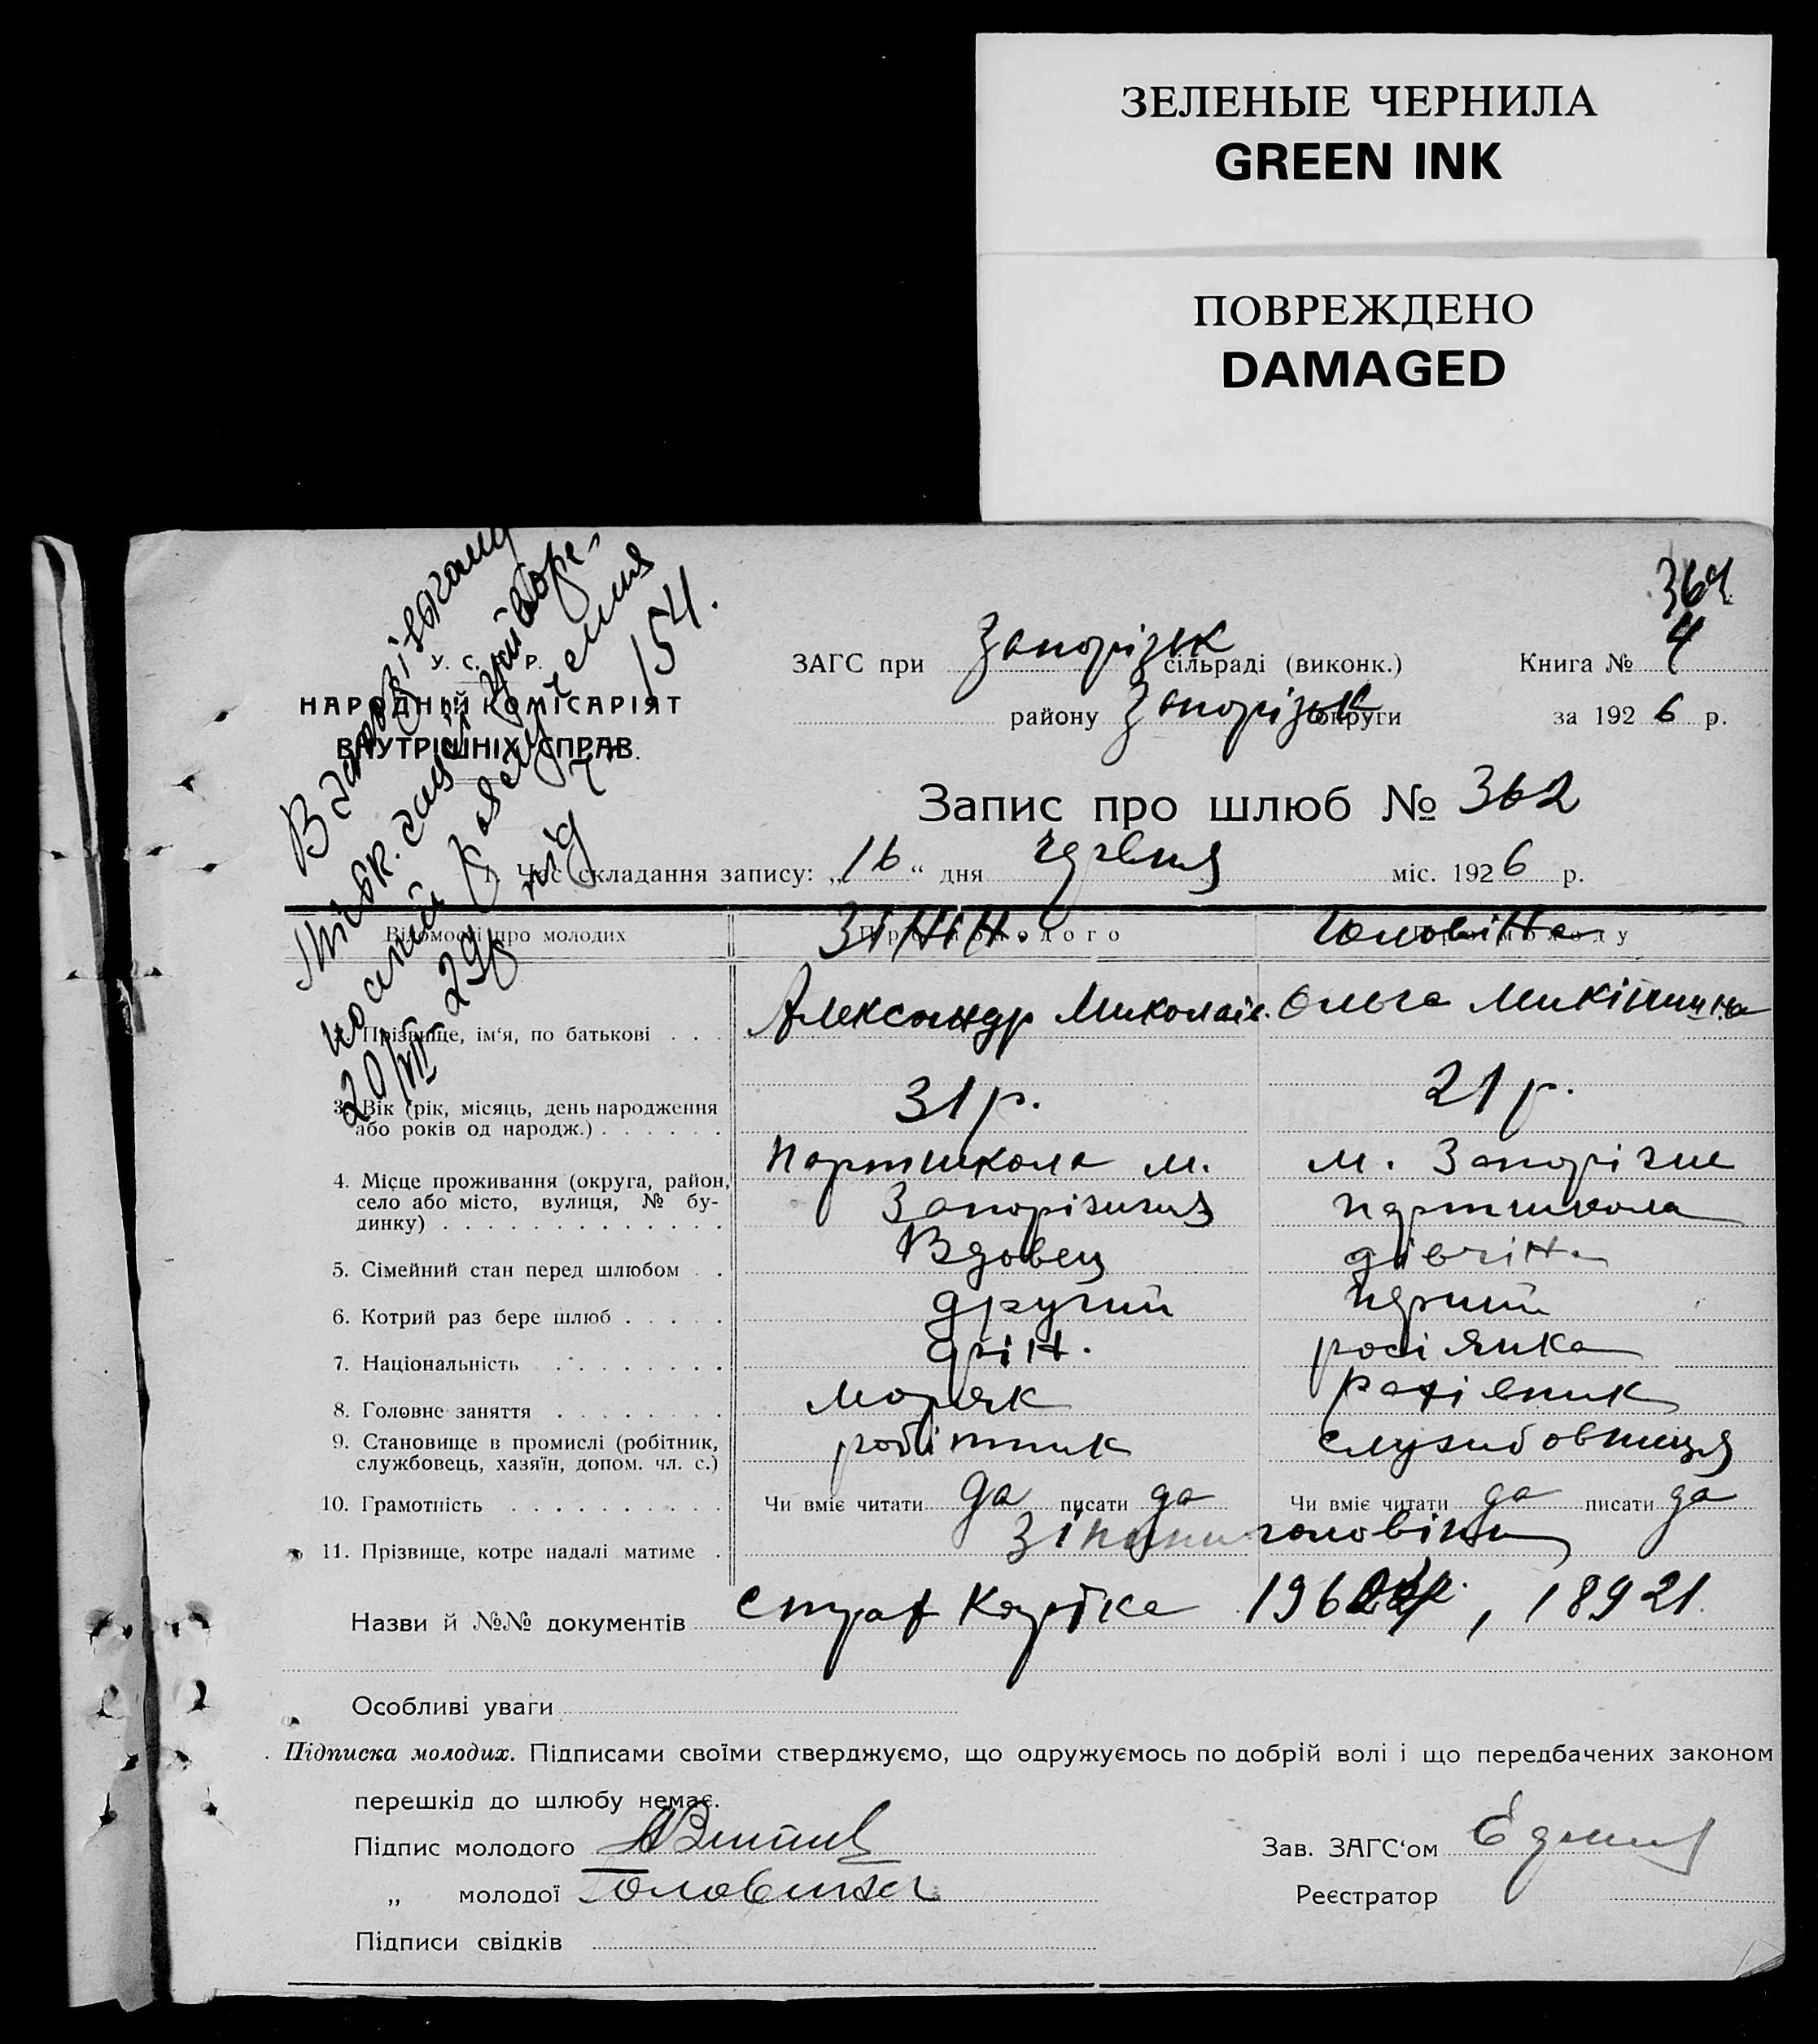 ЗЕЛЕНЫЕ ЧЕРНИЛА
GREEN INK
ПОВРЕЖДЕНО
DAMAGED
364
У. С. Р. Р.
НАРОДНЫЙ КОМІСАРІЯТ
ВНУТРІШНІХ СПРАВ.
В Запорізькому
20/VII 29р під 154.
ЗАГС при Запорізьк сільраді (виконк.) Книга № 4
району Запорізьк округи за 1926 р.
Запис про шлюб № 362
1. Час складання запису: „16“ дня червня міс. 1926 р.
Відомості про молодих Про молодого Про молоду
Зінін. Головіна
2. Прізвище, ім'я, по батькові . . . Александр Миколаів. Ольга Микітишна
3. Вік (рік, місяць, день народження 31 р. 21 р.
або років од народж.) . . . . . .
4. Місце проживання (округа, район, Партшкола м. м. Запоріжже
село або місто, вулиця, № бу- Запоріжжя партшкола
динку) . . . . . . . . . . . . .
5. Сімейний стан перед шлюбом . . Вдовец дівчіна
6. Котрий раз бере шлюб . . . . . другий перший
7. Національність . . . . . . . . росіянка
8. Головне заняття . . . . . . . . моряк
9. Становище в промислі (робітник, робітник службовниця
службовець, хазяїн, допом. чл. с.)
10. Грамотність . . . . . . . . . . Чи вміє читати да писати да Чи вміє читати да писати да
11. Прізвище, котре надалі матиме . Зінін Головіна
Назви й №№ документів страх картка , 18921.
Особливі уваги
Підписка молодих. Підписами своїми стверджуємо, що одружуємось по добрій волі і що передбачених законом
перешкід до шлюбу немає.
Підпис молодого Зав. ЗАГС'ом
„ молодої Головина Реєстратор
Підписи свідків